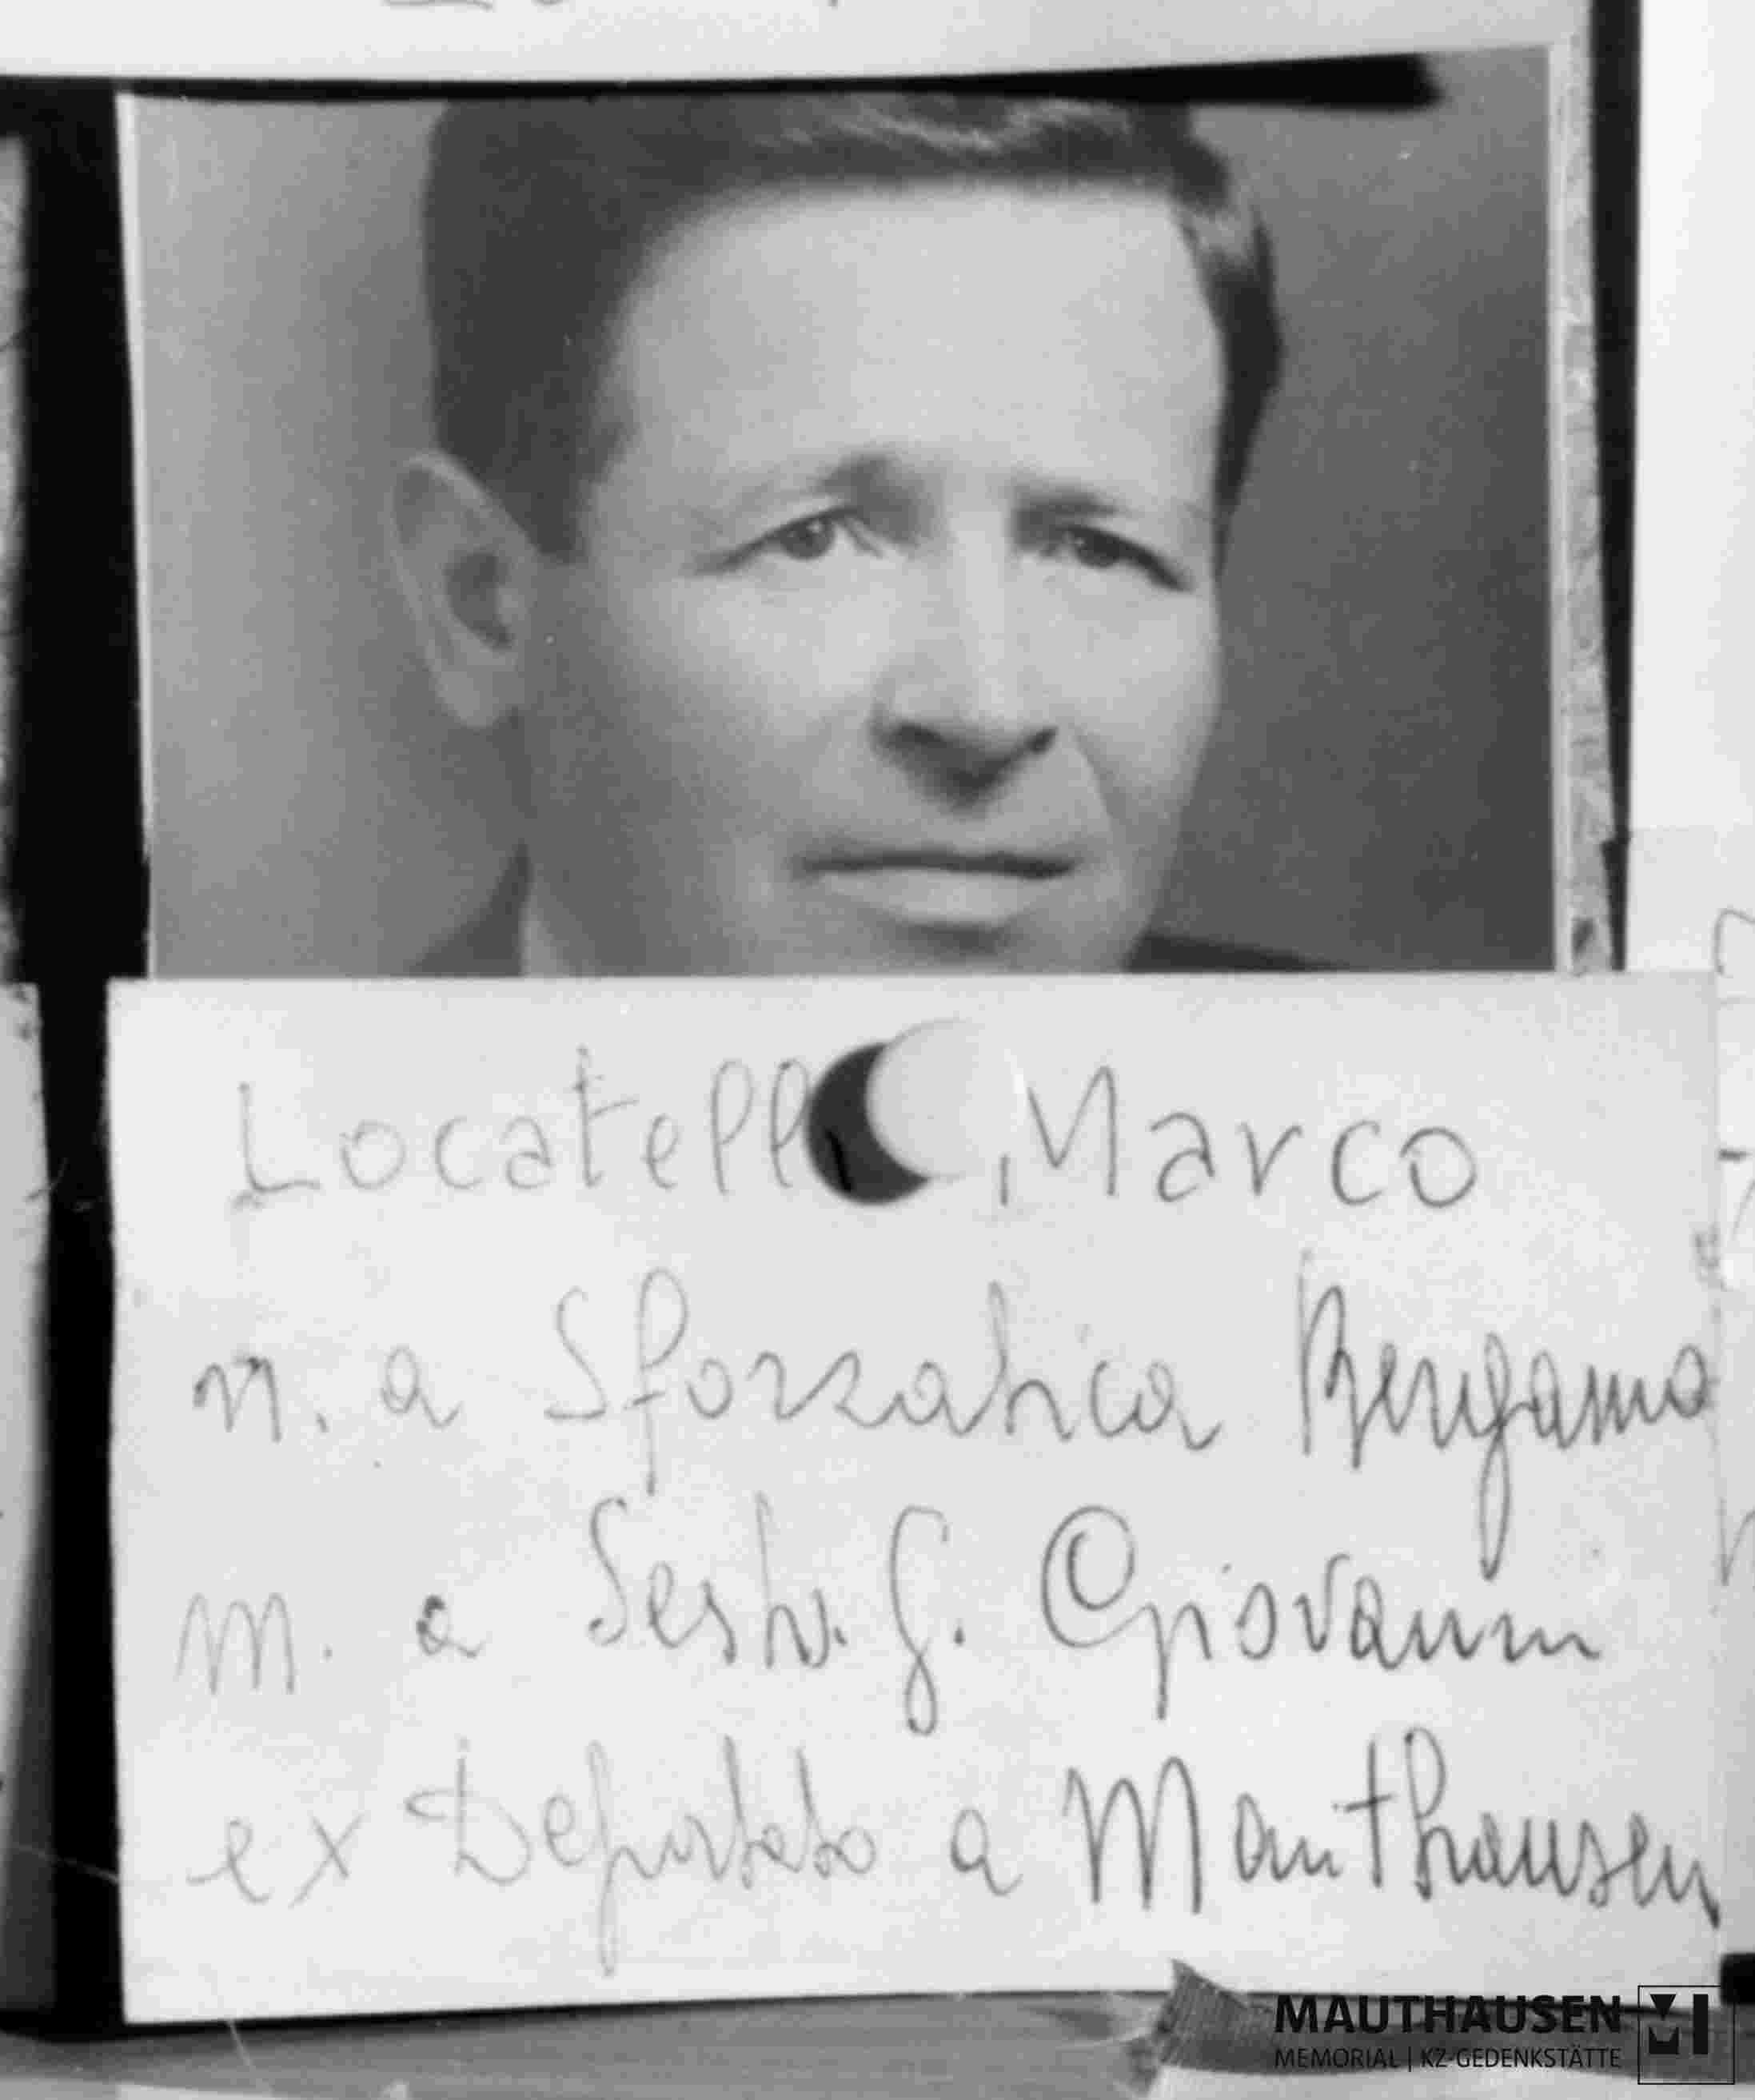 Locatell , Marco
n. a Sforzatica Bergamo
m. a Sesto. S. Giovanni
ex Deportato a Mauthausen
MAUTHAUSEN
MEMORIAL | KZ-GEDENKSTÄTTE